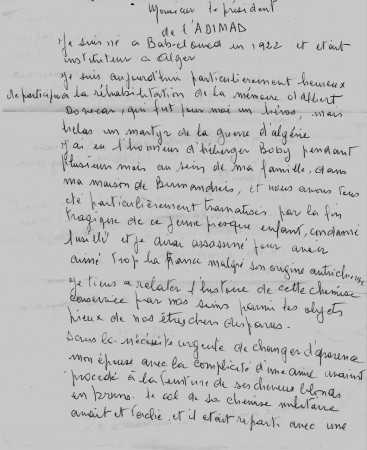 Monsieur le président
de l'ADIMAD
Je suis né à Bab-el-oued en 1922 et étant
instituteur à Alger
Je suis aujourd'hui particulièrement heureux
de participer à la réhabilitation de la mémoire d'Albert
Dovecar, qui fut pour moi un héros, mais
hélas un martyr de la guerre d'algérie
J'ai eu l'honneur d'héberger Boby pendant
plusieurs mois au sein de ma famille, dans
ma maison de Birmandreis, et nous avons tous
été particulièrement traumatisés par la fin
tragique de ce jeune presque enfant, condamné
fusillé et je dirai assassiné pour avoir
aimé trop la France malgré son origine autrichienne
Je tiens à relater l'histoire de cette chemise
conservée par nos soins parmi les objets
pieux de nos êtres chers disparus.
Dans la nécessité urgente de changer d'apparence
mon épouse avec la complicité d'une amie avaient
procédé à la teinture de ses cheveux blonds
en bruns. Le col de sa chemise militaire
avait été taché, et il était reparti avec une